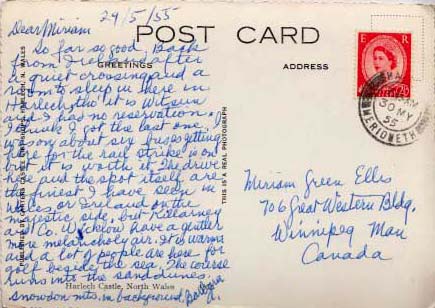 29/5/55
Dear Miriam
So far so good. Back
from Ireland after
a quiet crossing and a
room to sleep in there in
Harlech tho' it is Witsun
and I had no reservation.
I think I got the last one
was on about six buses getting
here for the rail strike is on
but it is worth it. The drive
here and the spot itself are
the finest I have seen in
Wales or Ireland on the
majestic side, but Killarney
and Co. Wicklow have a quieter
more melancholy air. It is warm
and a lot of people are here for
golf beside the sea. The course
runs into the sand dunes.
Snowdon mts. in background
POST CARD
GREETINGS
ADDRESS
THIS IS A REAL PHOTOGRAPH
Harlech Castle, North Wales
E R
30 MY
55
MERIONETH
Miriam Green Ellis
706 Great Western Bldg.
Winnipeg Man
Canada